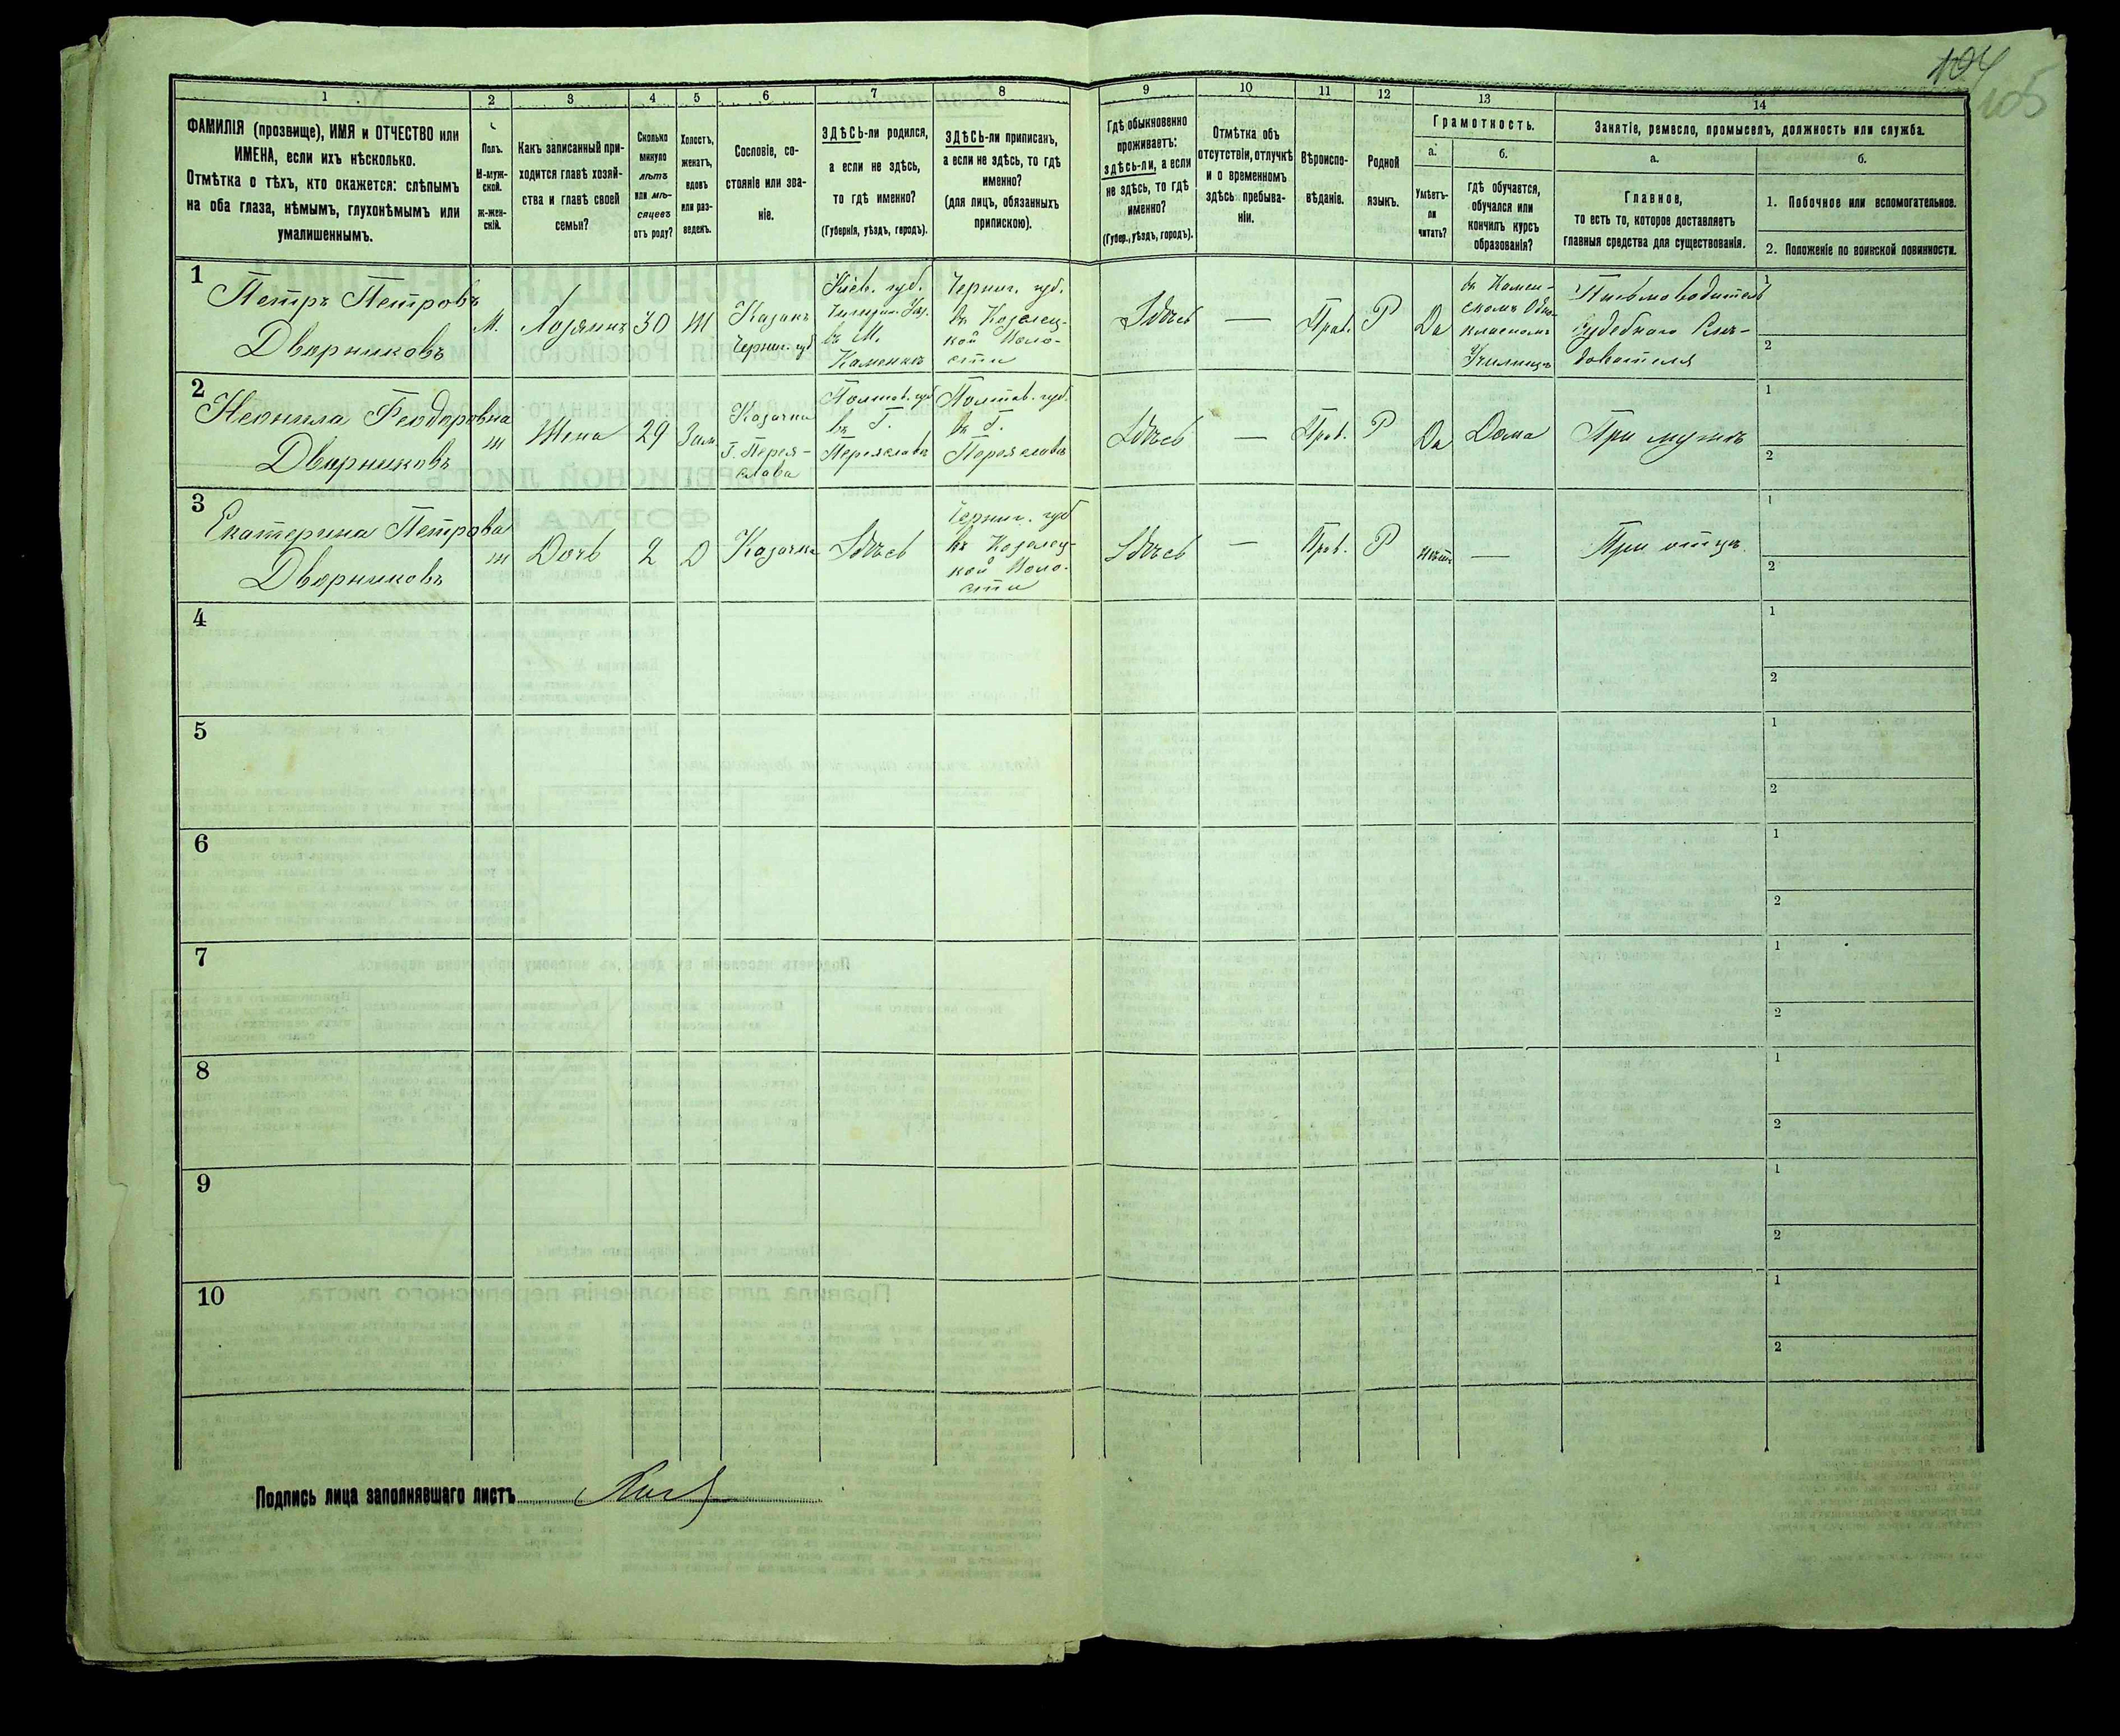 104
105
1
2
3
4
5
6
7
8
9
10
11
12
13
14
ФАМИЛІЯ (прозвище), ИМЯ и ОТЧЕСТВО или
ИМЕНА, если ихъ нѣсколько.
Отмѣтка о тѣхъ, кто окажется: слѣпымъ
на оба глаза, нѣмымъ, глухонѣмымъ или
умалишеннымъ.
Полъ.
М-муж-
ской.
Ж-жен-
скій.
Какъ записанный при-
ходится главѣ хозяй-
ства и главѣ своей
семьи?
Сколько
минуло
лѣтъ
или мѣ-
сяцевъ
отъ роду?
Холостъ,
женатъ,
вдовъ
или раз-
веденъ.
Сословіе, со-
стояніе или зва-
ніе.
ЗДѢСЬ-ли родился,
а если не здѣсь,
то гдѣ именно?
(Губернія, уѣздъ, городъ).
ЗДѢСЬ-ли приписанъ,
а если не здѣсь, то гдѣ
именно?
(для лицъ, обязанныхъ
припискою).
Гдѣ обыкновенно
проживаетъ:
здѣсь-ли, а если
не здѣсь, то гдѣ
именно?
(Губер., уѣздъ, городъ).
Отмѣтка объ
отсутствіи, отлучкѣ
и о временномъ
здѣсь пребыва-
ніи.
Вѣроиспо-
вѣданіе.
Родной
языкъ.
Грамотность.
а.
Умѣетъ-
ли
читать?
б.
гдѣ обучается,
обучался или
кончилъ курсъ
образованія?
Занятіе, ремесло, промыселъ, должность или служба.
а.
Главное,
то есть то, которое доставляетъ
главныя средства для существованія.
б.
1. Побочное или вспомогательное.
2. Положеніе по воинской повинности.
1
Петръ Петровъ
Дворниковъ
М.
Хозяинъ
30
Ж
Казакъ
Черниг. губ
Кіев. губ.
Чигирин. Уѣз.
въ М.
Каменкѣ
Черниг. губ.
въ Козелец-
кой Воло-
сти
Здѣсь
—
Прав.
Р
Да
въ Камен-
скомъ Одно-
классномъ
Училищѣ
Письмоводитель
Судебнаго Слѣ-
дователя
1
2
2
Неонила Феодоровна
Дворниковъ
Ж
Жена
29
Зам.
Казачка
Г. Перея-
слава
Полтав. губ
въ Г.
Переяславѣ
Полтав. губ.
въ Г.
Переяславѣ
Здѣсь
—
Прав.
Р
Да
Дома
При мужѣ
1
2
3
Екатерина Петрова
Дворниковъ
Ж
Дочь
2
Д
Казачка
Здѣсь
Черниг. губ
въ Козелец-
кой Воло-
сти
Здѣсь
—
Прав.
Р
Нѣтъ
—
При отцѣ.
1
2
4
1
2
5
1
2
6
1
2
7
1
2
8
1
2
9
1
2
10
1
2
Подпись лица заполнявшаго листъ